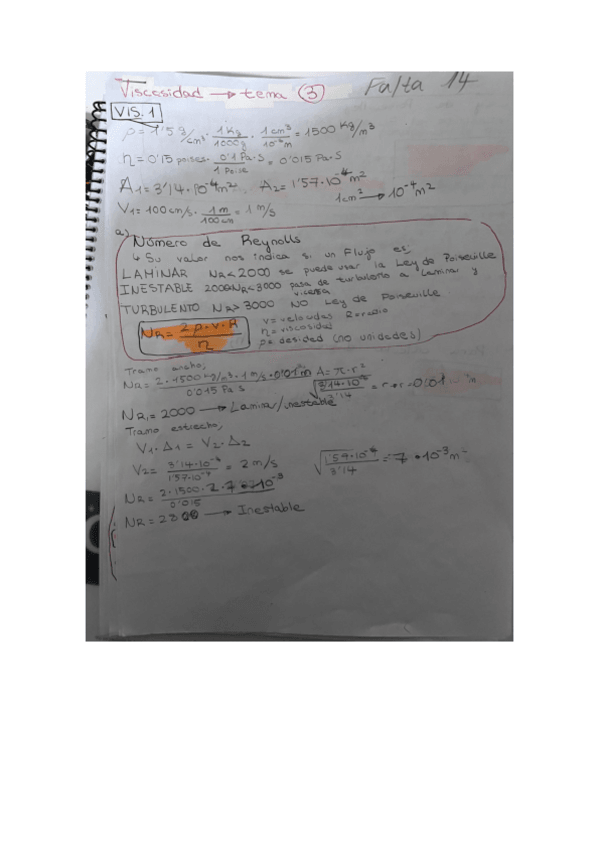 Viscosidad → tema ③ Falta 14
VIS. 1
ρ = 1'5 g/cm³ · 1 Kg/1000g · 1 cm³/10⁻⁶m = 1500 Kg/m³
η = 0'15 poises · 0'1 Pa·S/1 Poise = 0'015 Pa·S
A₁ = 3'14 · 10⁻⁴m² , A₂ = 1'57 · 10⁻⁴m²
1cm² → 10⁻⁴m²
V₁ = 100 cm/s · 1 m/100cm = 1 m/s
a)
Número de Reynolls
↳ Su valor nos indica si un Flujo es:
LAMINAR NR < 2000 se puede usar la Ley de Poiseuille
INESTABLE 2000<NR<3000 pasa de turbulento a laminar y viceversa
TURBULENTO NR > 3000 NO Ley de Poiseuille
NR = 2 ρ · v · R / η
v = velocidad R = radio
η = viscosidad
ρ = desidad (no unidades)
Tramo ancho,
NR₁ = 2 · 1500 Kg/m³ · 1 m/s · 0'01 m / 0'015 Pa·S
A = π · r²
√3'14 · 10⁻⁴/3'14 = r → r = 0'01 m
NR₁ = 2000 → Laminar/inestable
Tramo estrecho,
V₁ · A₁ = V₂ · A₂
V₂ = 3'14 · 10⁻⁴/1'57 · 10⁻⁴ = 2 m/s
√1'57 · 10⁻⁴/3'14 = 7 · 10⁻³ m
NR = 2 · 1500 · 2 · 7 · 10⁻³/0'015
NR = 2800 → Inestable